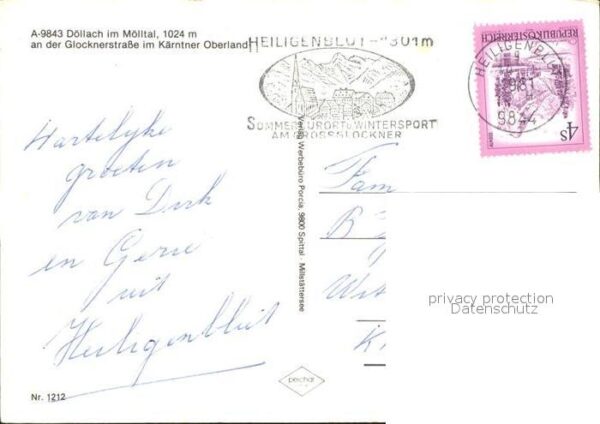 A-9843 Döllach im Mölltal, 1024 m
an der Glocknerstraße im Kärntner Oberland
HEILIGENBLUT - 1301m
SOMMERKURORT u. WINTERSPORT
AM GROSSGLOCKNER
HEILIGENBLUT
9844
REPUBLIK ÖSTERREICH
4S
Hartelijke
groeten
van Dirk
en Gerrie
uit
Heiligenblut
Verlag Werbebüro Porcia, 9800 Spittal - Millstättersee
Fam
B
Wit
K
privacy protection
Datenschutz
perchar
Nr. 1212